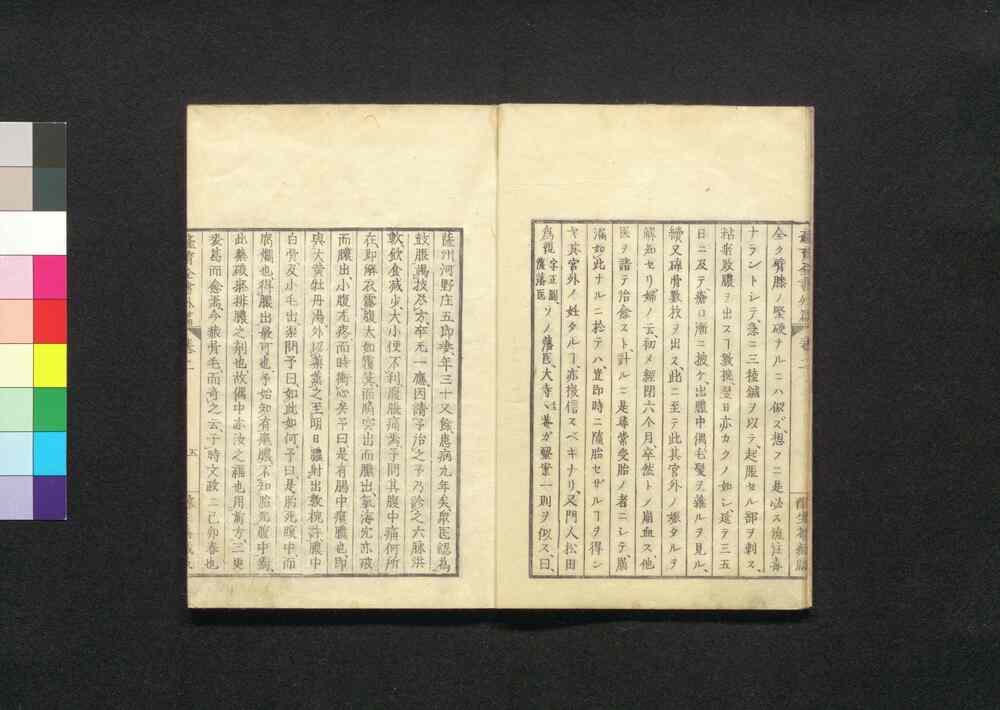 全ク臂膝ノ堅硬ナルニハ似ズ、想フニ是必ス流注毒
ナラントシテ、急ニ三稜鍼ヲ以テ、起脹セル部ヲ刺ス、
粘痢敗膿ヲ出スヿ数椀、翌日亦カクノ如シ、延テ三五
日ニ及テ、瘡口漸ニ披ケ、出膿中偶毛髪ヲ雜ルヲ見ル、
續又碎骨數枚ヲ出ス、此ニ至テ此其宮外ノ娠タルヲ
解知セリ、婦ノ云、初メ經閉六个月、卒然トノ崩血ス、他
医ヲ請テ治愈スト、計ルニ是尋常受胎ノ者ニシテ、崩
漏如此ナルニ於テハ、豈即時ニ墮胎セザルヿヲ得ン
ヤ、其宮外ノ妊タルヿ、亦徴信スベキナリ、又門人松田
ソノ藩医、大寺 菴ガ毉案一則ヲ似ス、曰、
薩州河野庄五郎妻、年三十又餘、患病九年矣、眾医認爲
鼓脹、蜀技尽方、卒无一應、因請予治之、予乃診之、六脉洪
軟、飲食減少、大小便不利、腹脹痛、予問其腹中痛何所
在、即解衣露腹、大如覆箕、而臍突出、而膿出、氣海穴亦破
而膿出、小腹尤疼、而時衝心矣、予曰是有腸中癰膿也、即
與大黄牡丹湯、外 藥蒸之、至明日膿射出數椀許、膿中
白骨及小毛出、家問予曰、如此如何、予曰、是胎死腹中、而
腐爛也、得膿出最可也、予始知有瘀膿、不知胎死腹中、對
此藥破瘀排膿之剤也、故偶中亦汝之福也、用前方三更
裘葛而愈、焉、今 骨毛、而奇之云、于時文政二己卯春也
五